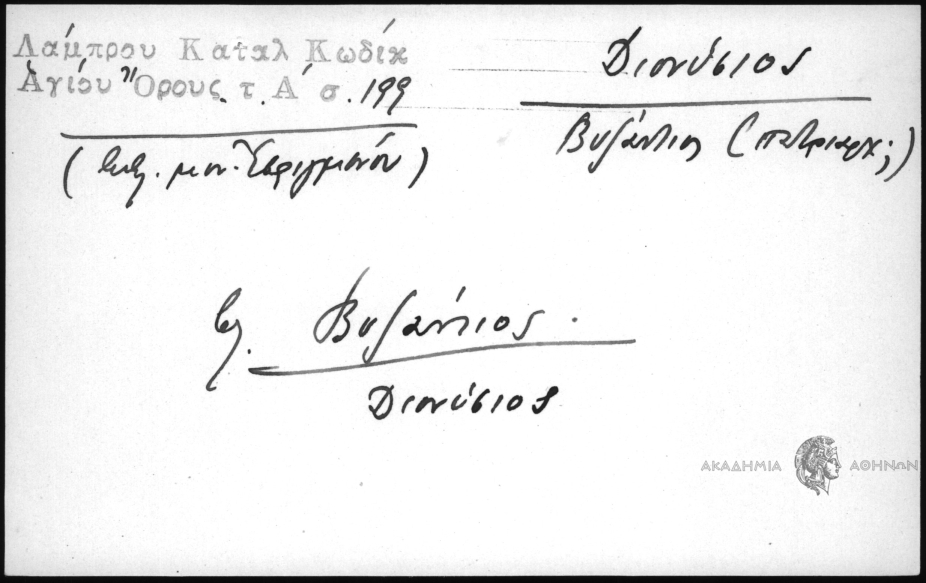 Λάμπρου Καταλ Κωδίκ
Ἁγίου Ὄρους τ. Α΄ σ. 199
( μον. Ἐσφιγμένου)
Διονύσιος
Βυζάντιος (πατριαρχ;)
βλ. Βυζάντιος.
Διονύσιος
ΑΚΑΔΗΜΙΑ ΑΘΗΝΩΝ